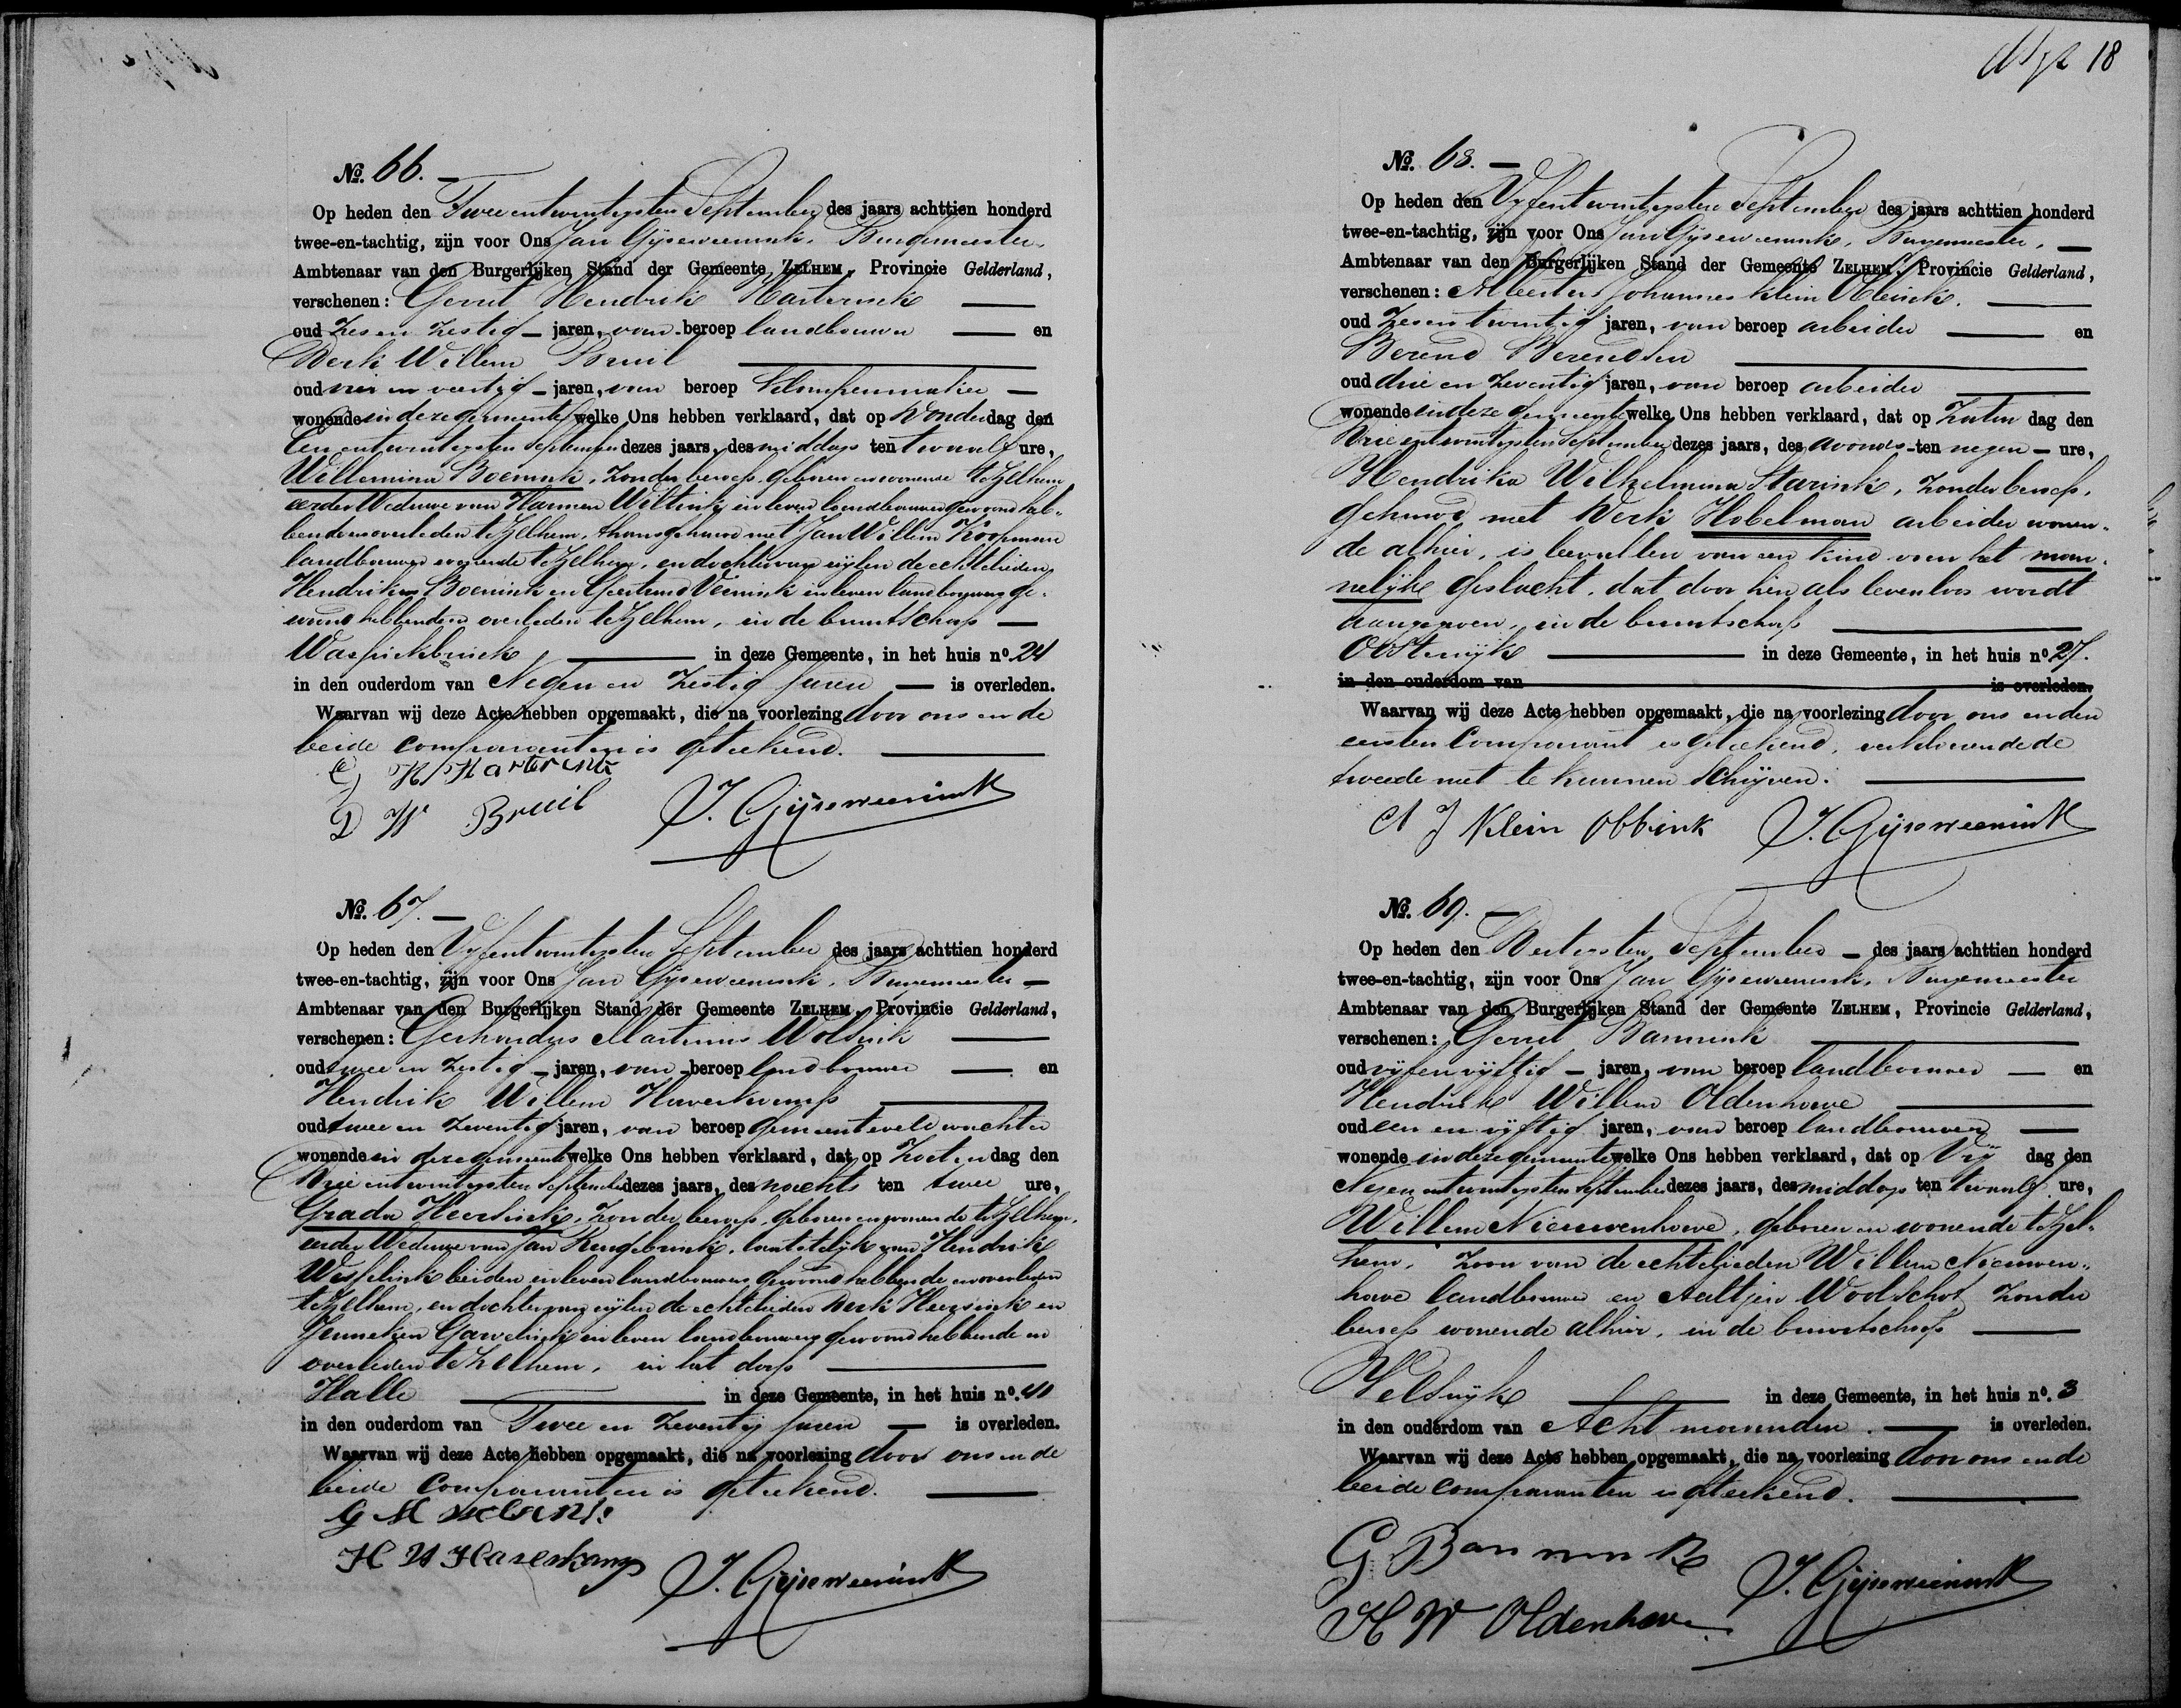 18
No. 66. —
Op heden den Twee entwintigsten September des jaars achttien honderd
twee-en-tachtig, zijn voor Ons Jan Gijseweenink, Burgemeester,
Ambtenaar van den Burgerlijken Stand der Gemeente ZELHEM, Provincie Gelderland,
verschenen: Gerrit Hendrik Harterink —
oud Zes en Zestig — jaren, van beroep landbouwer — en
Derk Willem Bruil —
oud vier en veertig — jaren, van beroep klompenmaker —
wonende in deze gemeente welke Ons hebben verklaard, dat op Donderdag den
Een entwintigsten September dezes jaars, des middags ten twaalf ure,
Willemina Boenink, zonder beroep, geboren en wonende te Zelhem
eerder Weduwe van Harmen Wiltink, in leven landbouwer gewoond heb-
bende en overleden te Zelhem, thans gehuwd met Jan Willem Koopman
landbouwer wonende te Zelhem, en dochter van wijlen de echtelieden
Hendrikus Boenink en Geertruid in leven landbouwers ge-
woond hebbende en overleden te Zelhem, in de buurtschap —
— in deze Gemeente, in het huis no. 24
in den ouderdom van Negen en Zestig Jaren — is overleden.
Waarvan wij deze Acte hebben opgemaakt, die na voorlezing door ons en de
beide comparanten is geteekend. —
G H Harterink
D W Bruil J. Gijseweenink
No. 67. —
Op heden den Vyfentwintigsten September des jaars achttien honderd
twee-en-tachtig, zijn voor Ons Jan Gijseweenink, Burgemeester —
Ambtenaar van den Burgerlijken Stand der Gemeente ZELHEM, Provincie Gelderland,
verschenen: Gerhardus Martinus Wolsink —
oud twee en Zestig — jaren, van beroep landbouwer — en
Hendrik Willem Haverkamp —
oud twee en Zeventig jaren, van beroep gemeenteveldwachter
wonende in deze gemeente welke Ons hebben verklaard, dat op Zaterdag den
Drie entwintigsten September dezes jaars, des nachts ten twee ure,
Grada Heersink, zonder beroep, geboren en wonende te Zelhem,
eerder Weduwe van Jan Rengelink, laatstelijk van Hendrik
Wesselink beiden in leven landbouwers gewoond hebbende en overleden
te Zelhem, en dochter van wijlen de echtelieden Derk Heersink en
Jenneken Garvelink in leven landbouwers gewoond hebbende en
overleden te Zelhem, in het dorp —
Halle — in deze Gemeente, in het huis no. 40
in den ouderdom van Twee en Zeventig Jaren — is overleden.
Waarvan wij deze Acte hebben opgemaakt, die na voorlezing door ons en de
beide comparanten is geteekend. —
G M
H W Haverkamp J. Gijseweenink
No. 68. —
Op heden den Vyfentwintigsten September des jaars achttien honderd
twee-en-tachtig, zijn voor Ons Jan Gijseweenink, Burgemeester, —
Ambtenaar van den Burgerlijken Stand der Gemeente ZELHEM, Provincie Gelderland,
verschenen: Albertus Johannes Klein Obbink. —
oud Zesentwintig jaren, van beroep arbeider — en
Berend Berendsen —
oud drie en Zeventig jaren, van beroep arbeider —
wonende in deze gemeente welke Ons hebben verklaard, dat op Zater dag den
Drie entwintigsten September dezes jaars, des avonds - ten negen — ure,
Hendrika Wilhelmina Starink, zonder beroep,
gehuwd met Derk Hobelman arbeider wonen-
de alhier, is bevallen van een kind van het man-
nelijke geslacht, dat door hen als levenloos wordt
aangegeven, in de buurtschap —
Oosterwijk — in deze Gemeente, in het huis no. 27.
in den ouderdom van is overleden.
Waarvan wij deze Acte hebben opgemaakt, die na voorlezing door ons en den
eersten Comparant is geteekend, verklarende de
tweede niet te kunnen schrijven. —
A J Klein Obbink J. Gijseweenink
No. 69. —
Op heden den Dertigsten September — des jaars achttien honderd
twee-en-tachtig, zijn voor Ons Jan Gijseweenink, Burgemeester
Ambtenaar van den Burgerlijken Stand der Gemeente ZELHEM, Provincie Gelderland,
verschenen: Gerrit Bannink —
oud vijf en vijftig — jaren, van beroep landbouwer — en
Hendrik Willem Oldenhave —
oud een en vijftig jaren, van beroep landbouwer —
wonende in deze gemeente welke Ons hebben verklaard, dat op Vrij dag den
Negen entwintigsten September dezes jaars, des middags ten twaalf ure,
Willem Nieuwenhuve, geboren en wonende te Zel-
hem, zoon van de echtelieden Willem Nieuwen-
have landbouwer en Aaltjen Woolschot zonder
beroep wonende alhier, in de buurtschap —
Velswijk — in deze Gemeente, in het huis no. 3
in den ouderdom van Acht maanden. — is overleden.
Waarvan wij deze Acte hebben opgemaakt, die na voorlezing door ons en de
beide comparanten is geteekend. —
G. Bannink
H W Oldenhave J. Gijseweenink